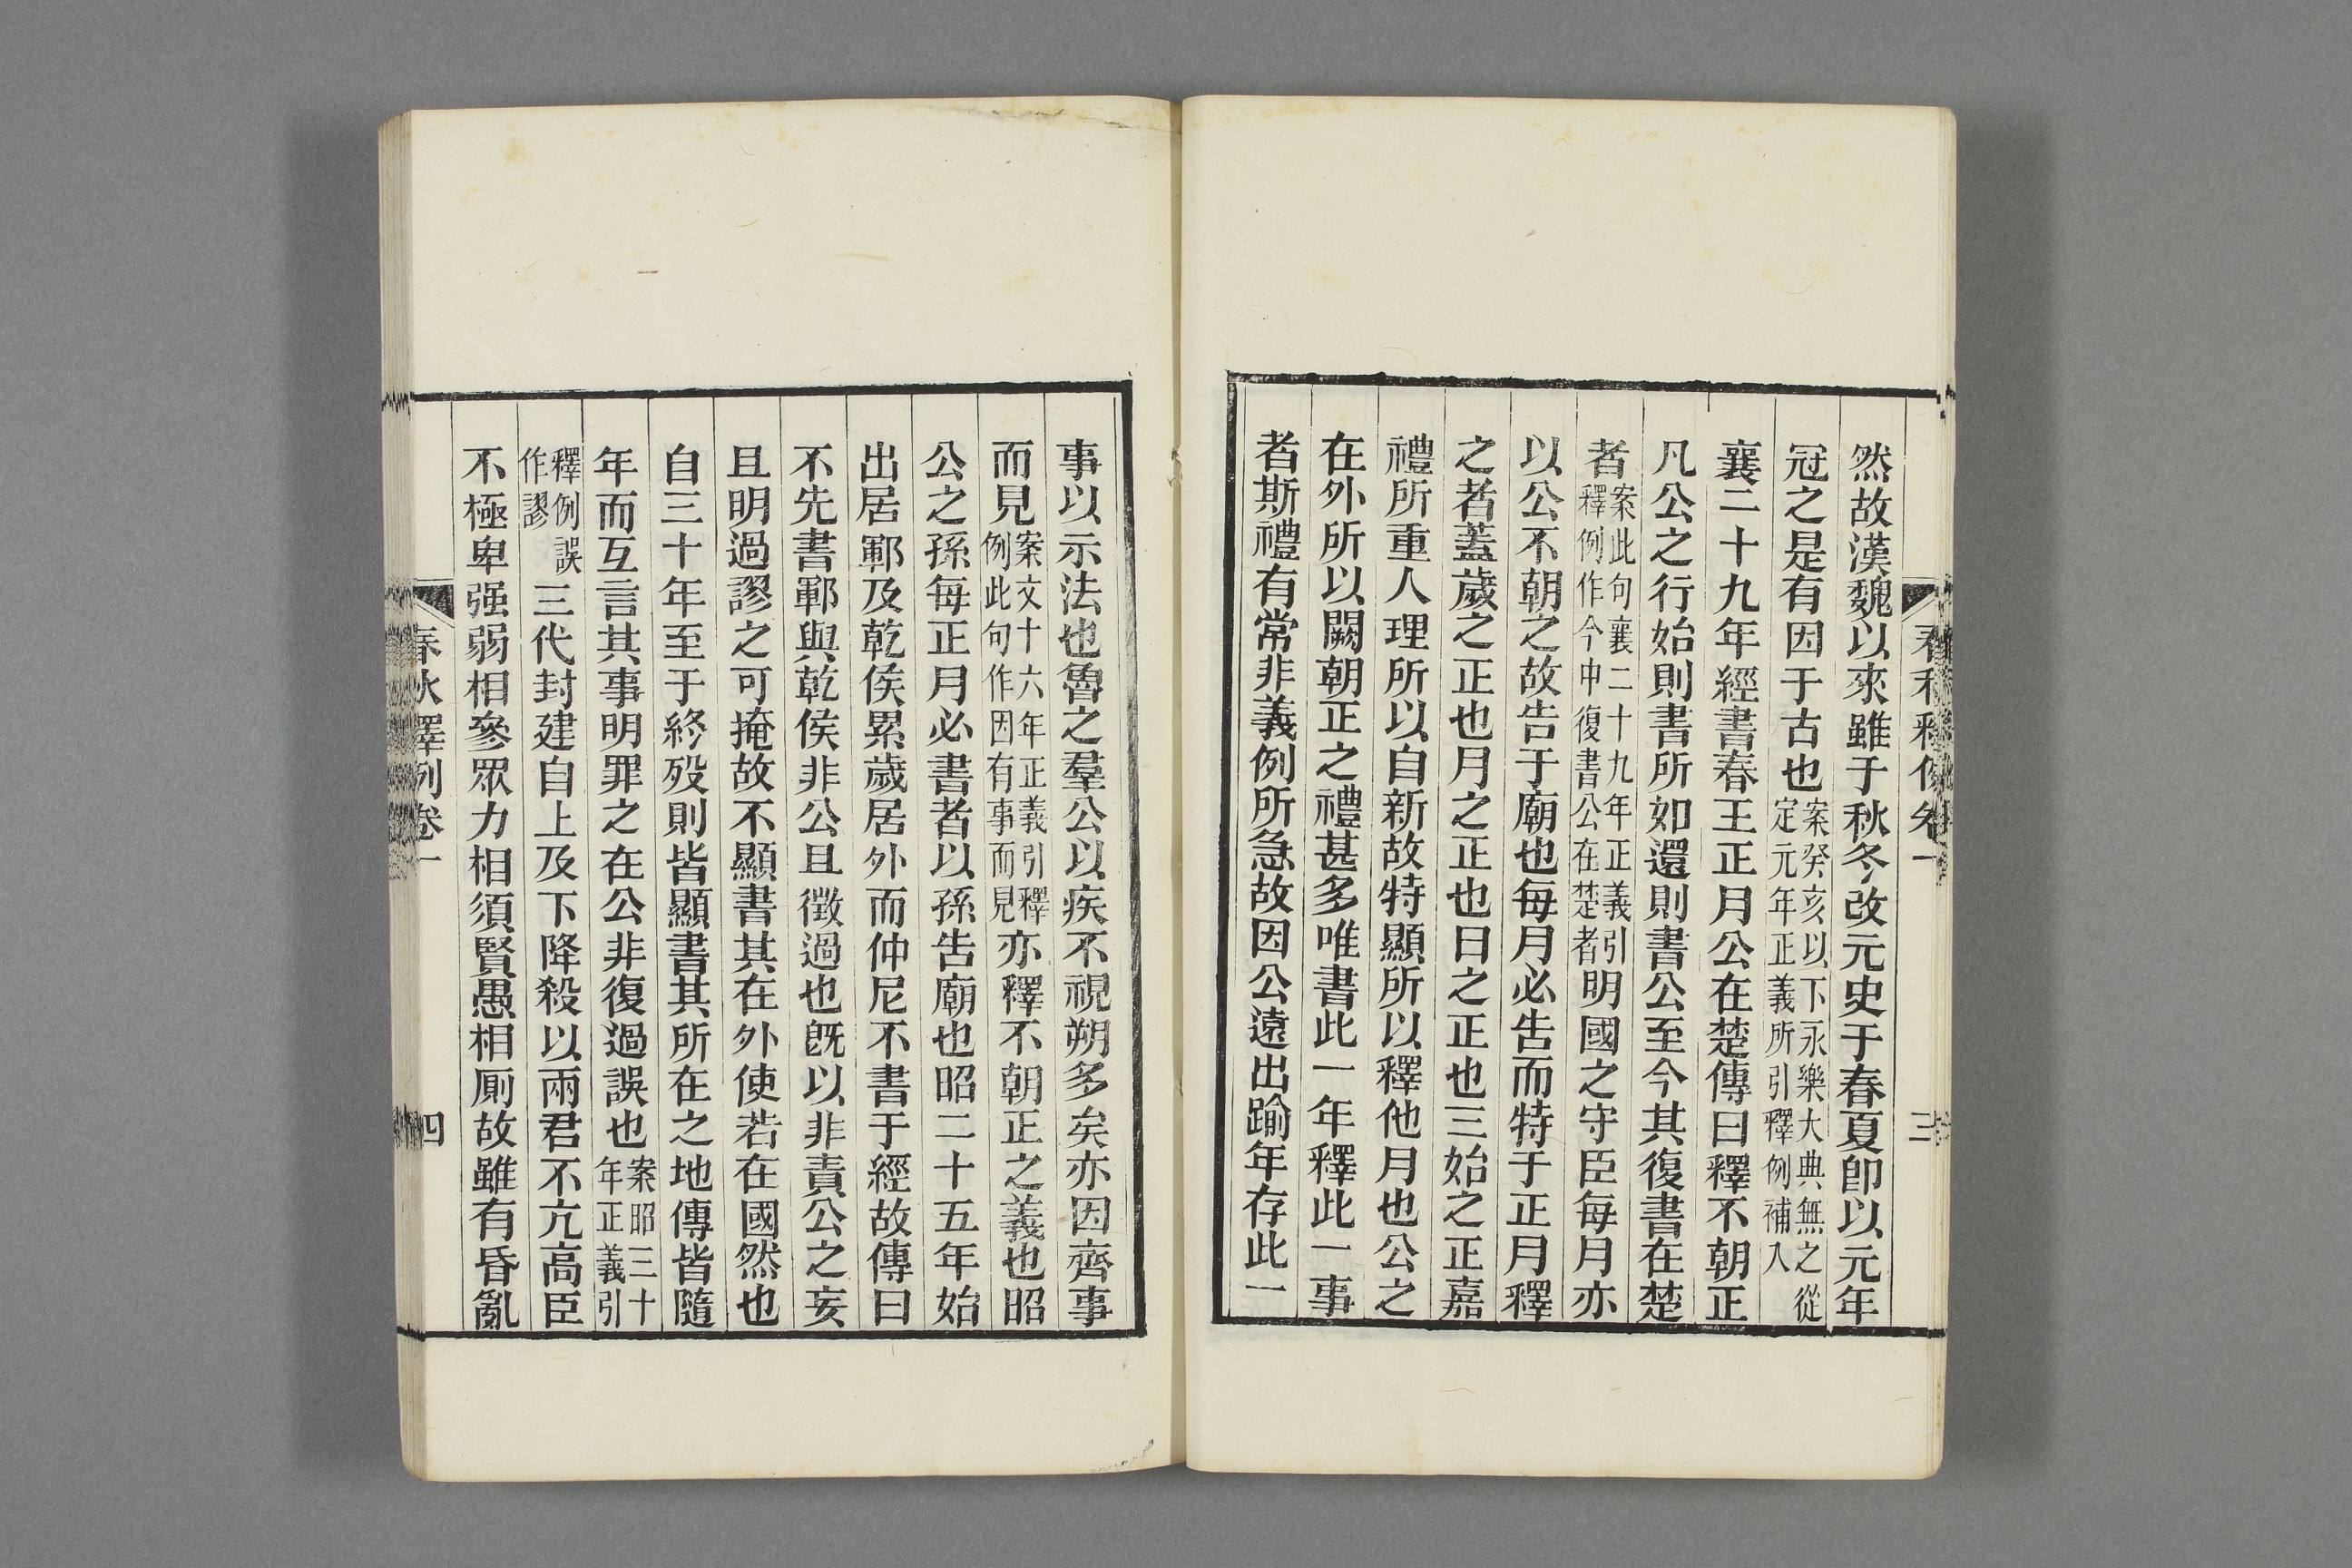 然故漢魏以來雖于秋冬改元史于春夏卽以元年
冠之是有因于古也案癸亥以下永樂大典無之從定元年正義所引釋例補入
襄二十九年經書春王正月公在楚傳曰釋不朝正
凡公之行始則書所如還則書公至今其復書在楚
者案此句襄二十九年正義引釋例作今中復書公在楚者明國之守臣每月亦
以公不朝之故告于廟也每月必告而特于正月釋
之者蓋歲之正也月之正也日之正也三始之正嘉
禮所重人理所以自新故特顯所以釋他月也公之
在外所以闕朝正之禮甚多唯書此一年釋此一事
者斯禮有常非義例所急故因公遠出踰年存此一
事以示法也魯之羣公以疾不視朔多矣亦因齊事
而見案文十六年正義引釋例此句作因有事而見亦釋不朝正之義也昭
公之孫每正月必書者以孫告廟也昭二十五年始
出居鄆及乾侯累歲居外而仲尼不書于經故傳曰
不先書鄆與乾侯非公且徵過也旣以非責公之妄
且明過謬之可掩故不顯書其在外使若在國然也
自三十年至于終歿則皆顯書其所在之地傳皆隨
年而互言其事明罪之在公非復過誤也案昭三十年正義引
釋例誤作謬三代封建自上及下降殺以兩君不亢高臣
不極卑强弱相參眾力相須賢愚相厠故雖有昏亂
春秋釋例卷一 四